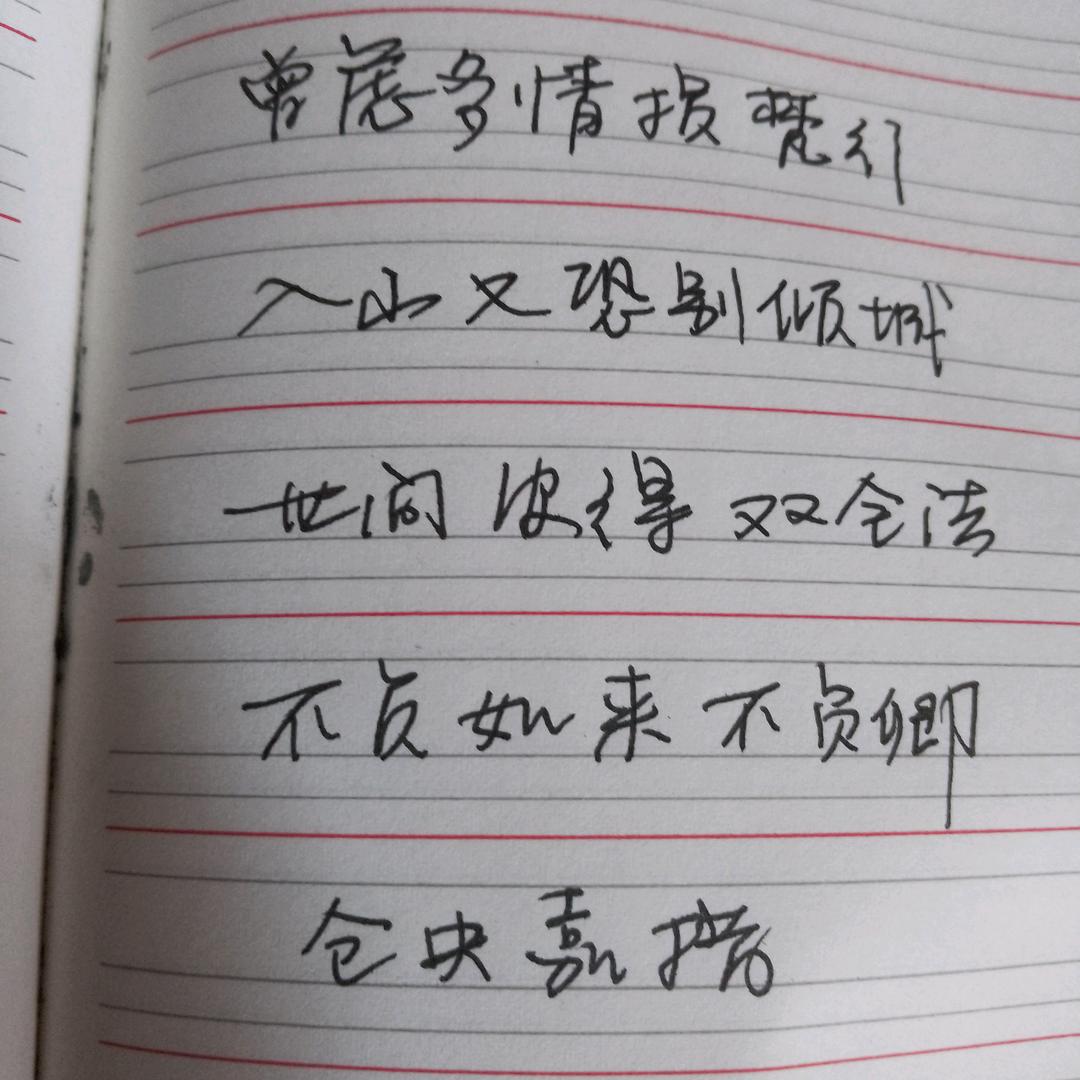 曾虑多情损梵行
入山又恐别倾城
世间安得双全法
不负如来不负卿
仓央嘉措